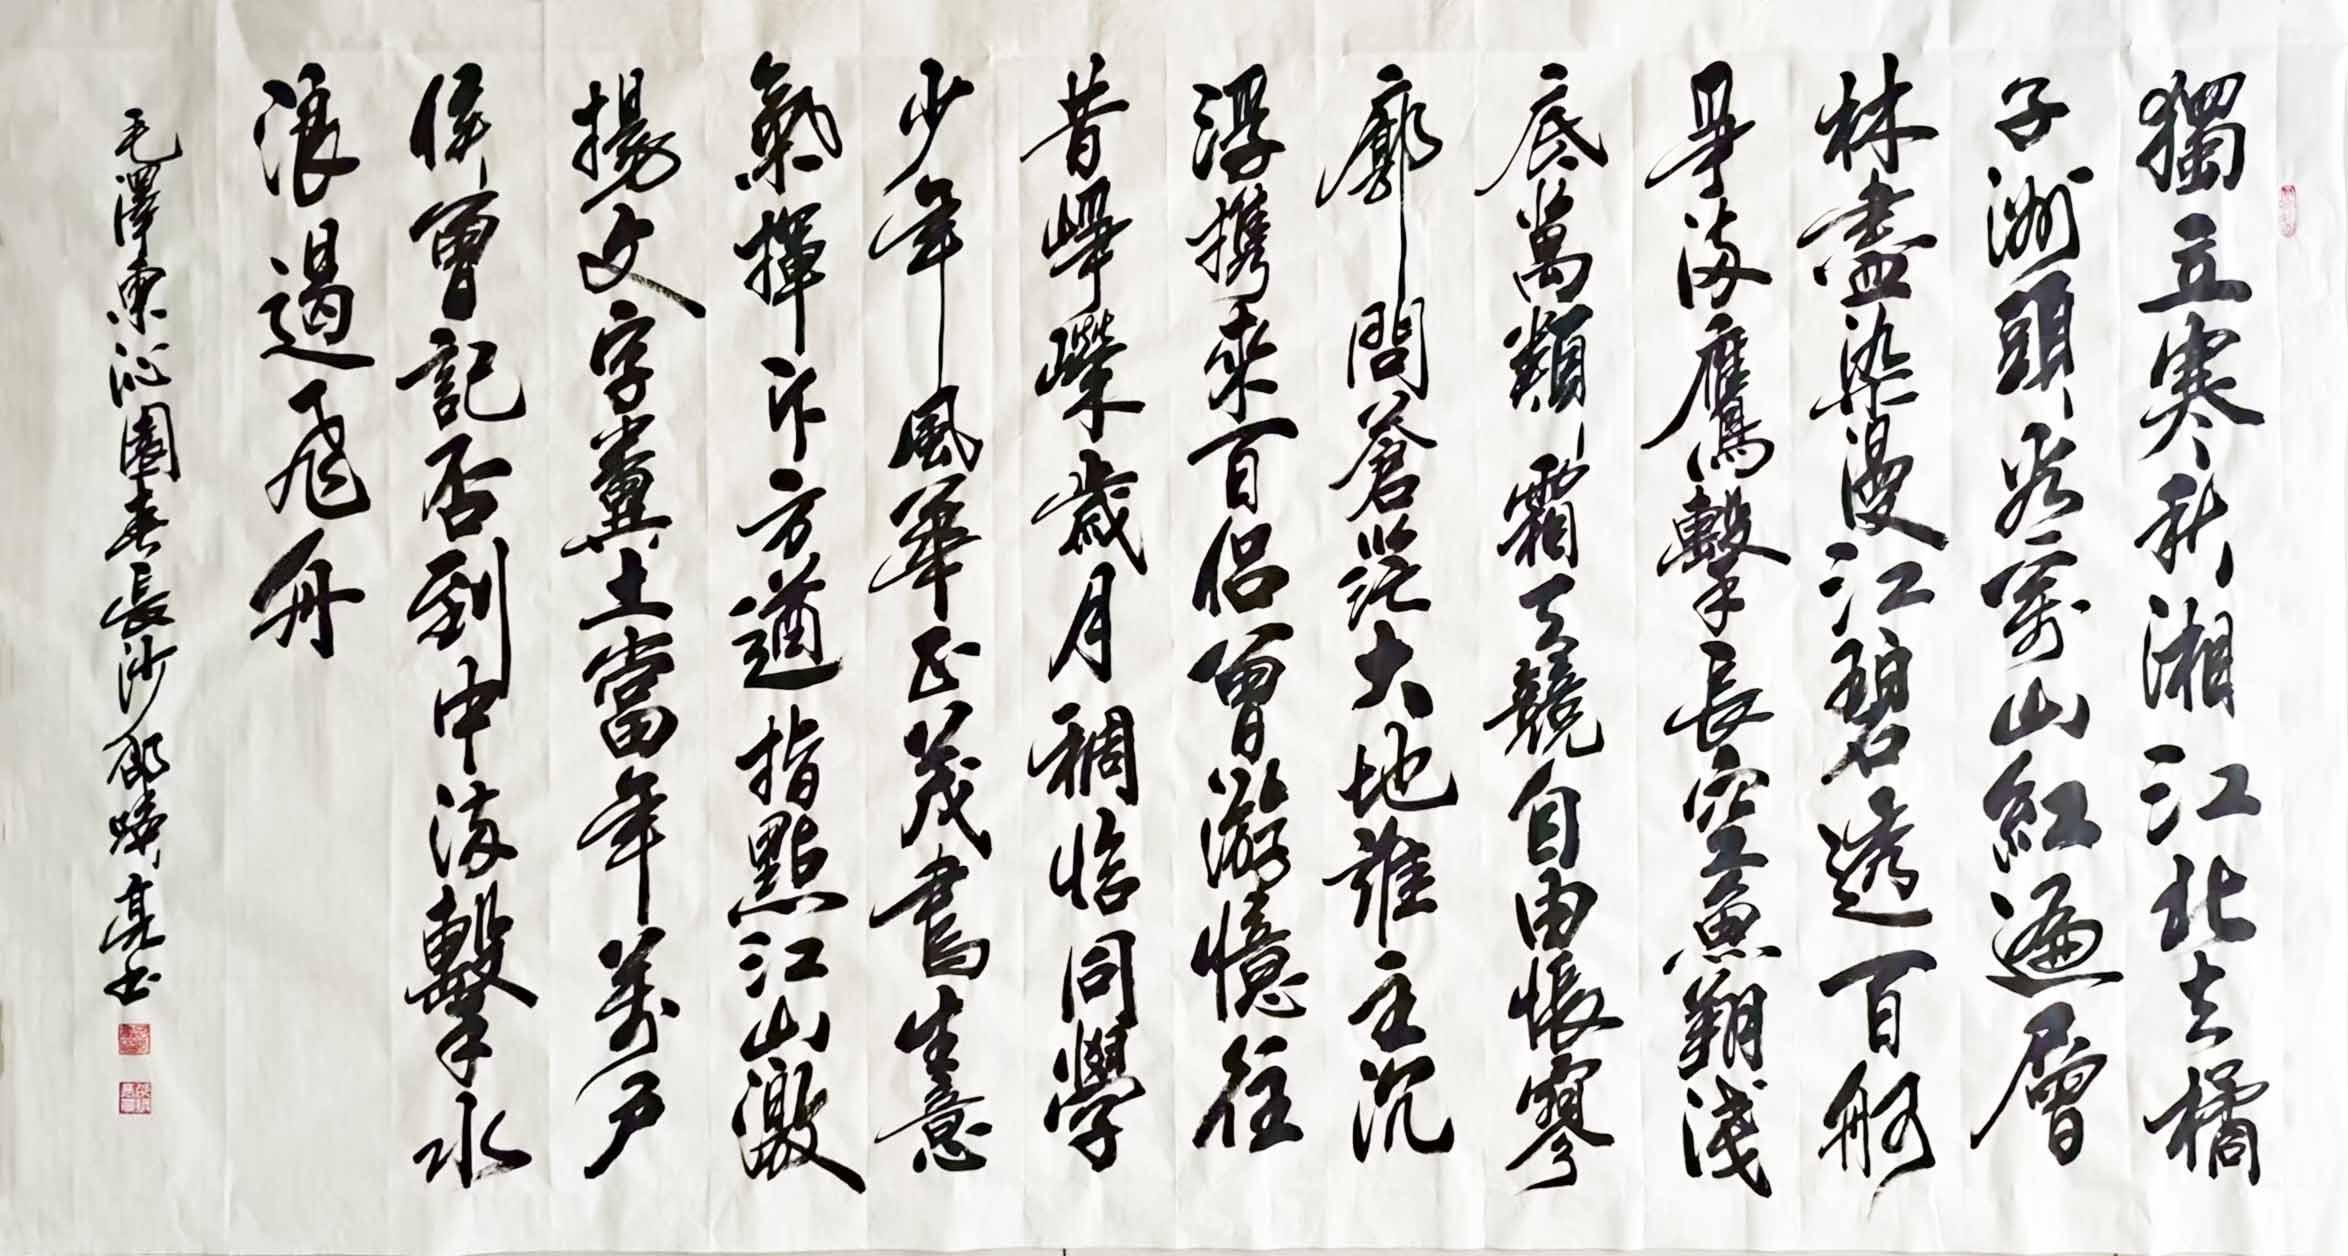 獨立寒秋湘江北去橘
子洲頭看萬山紅遍層
林盡染漫江碧透百舸
爭流鷹擊長空魚翔淺
底萬類霜天競自由悵寥
廓問蒼茫大地誰主沉
浮携來百侶曾游憶往
昔崢嶸歲月稠恰同學
少年風華正茂書生意
氣揮斥方遒指點江山激
揚文字糞土當年萬户
侯曾記否到中流擊水
浪遏飛舟
毛澤東沁園春長沙邵亮书